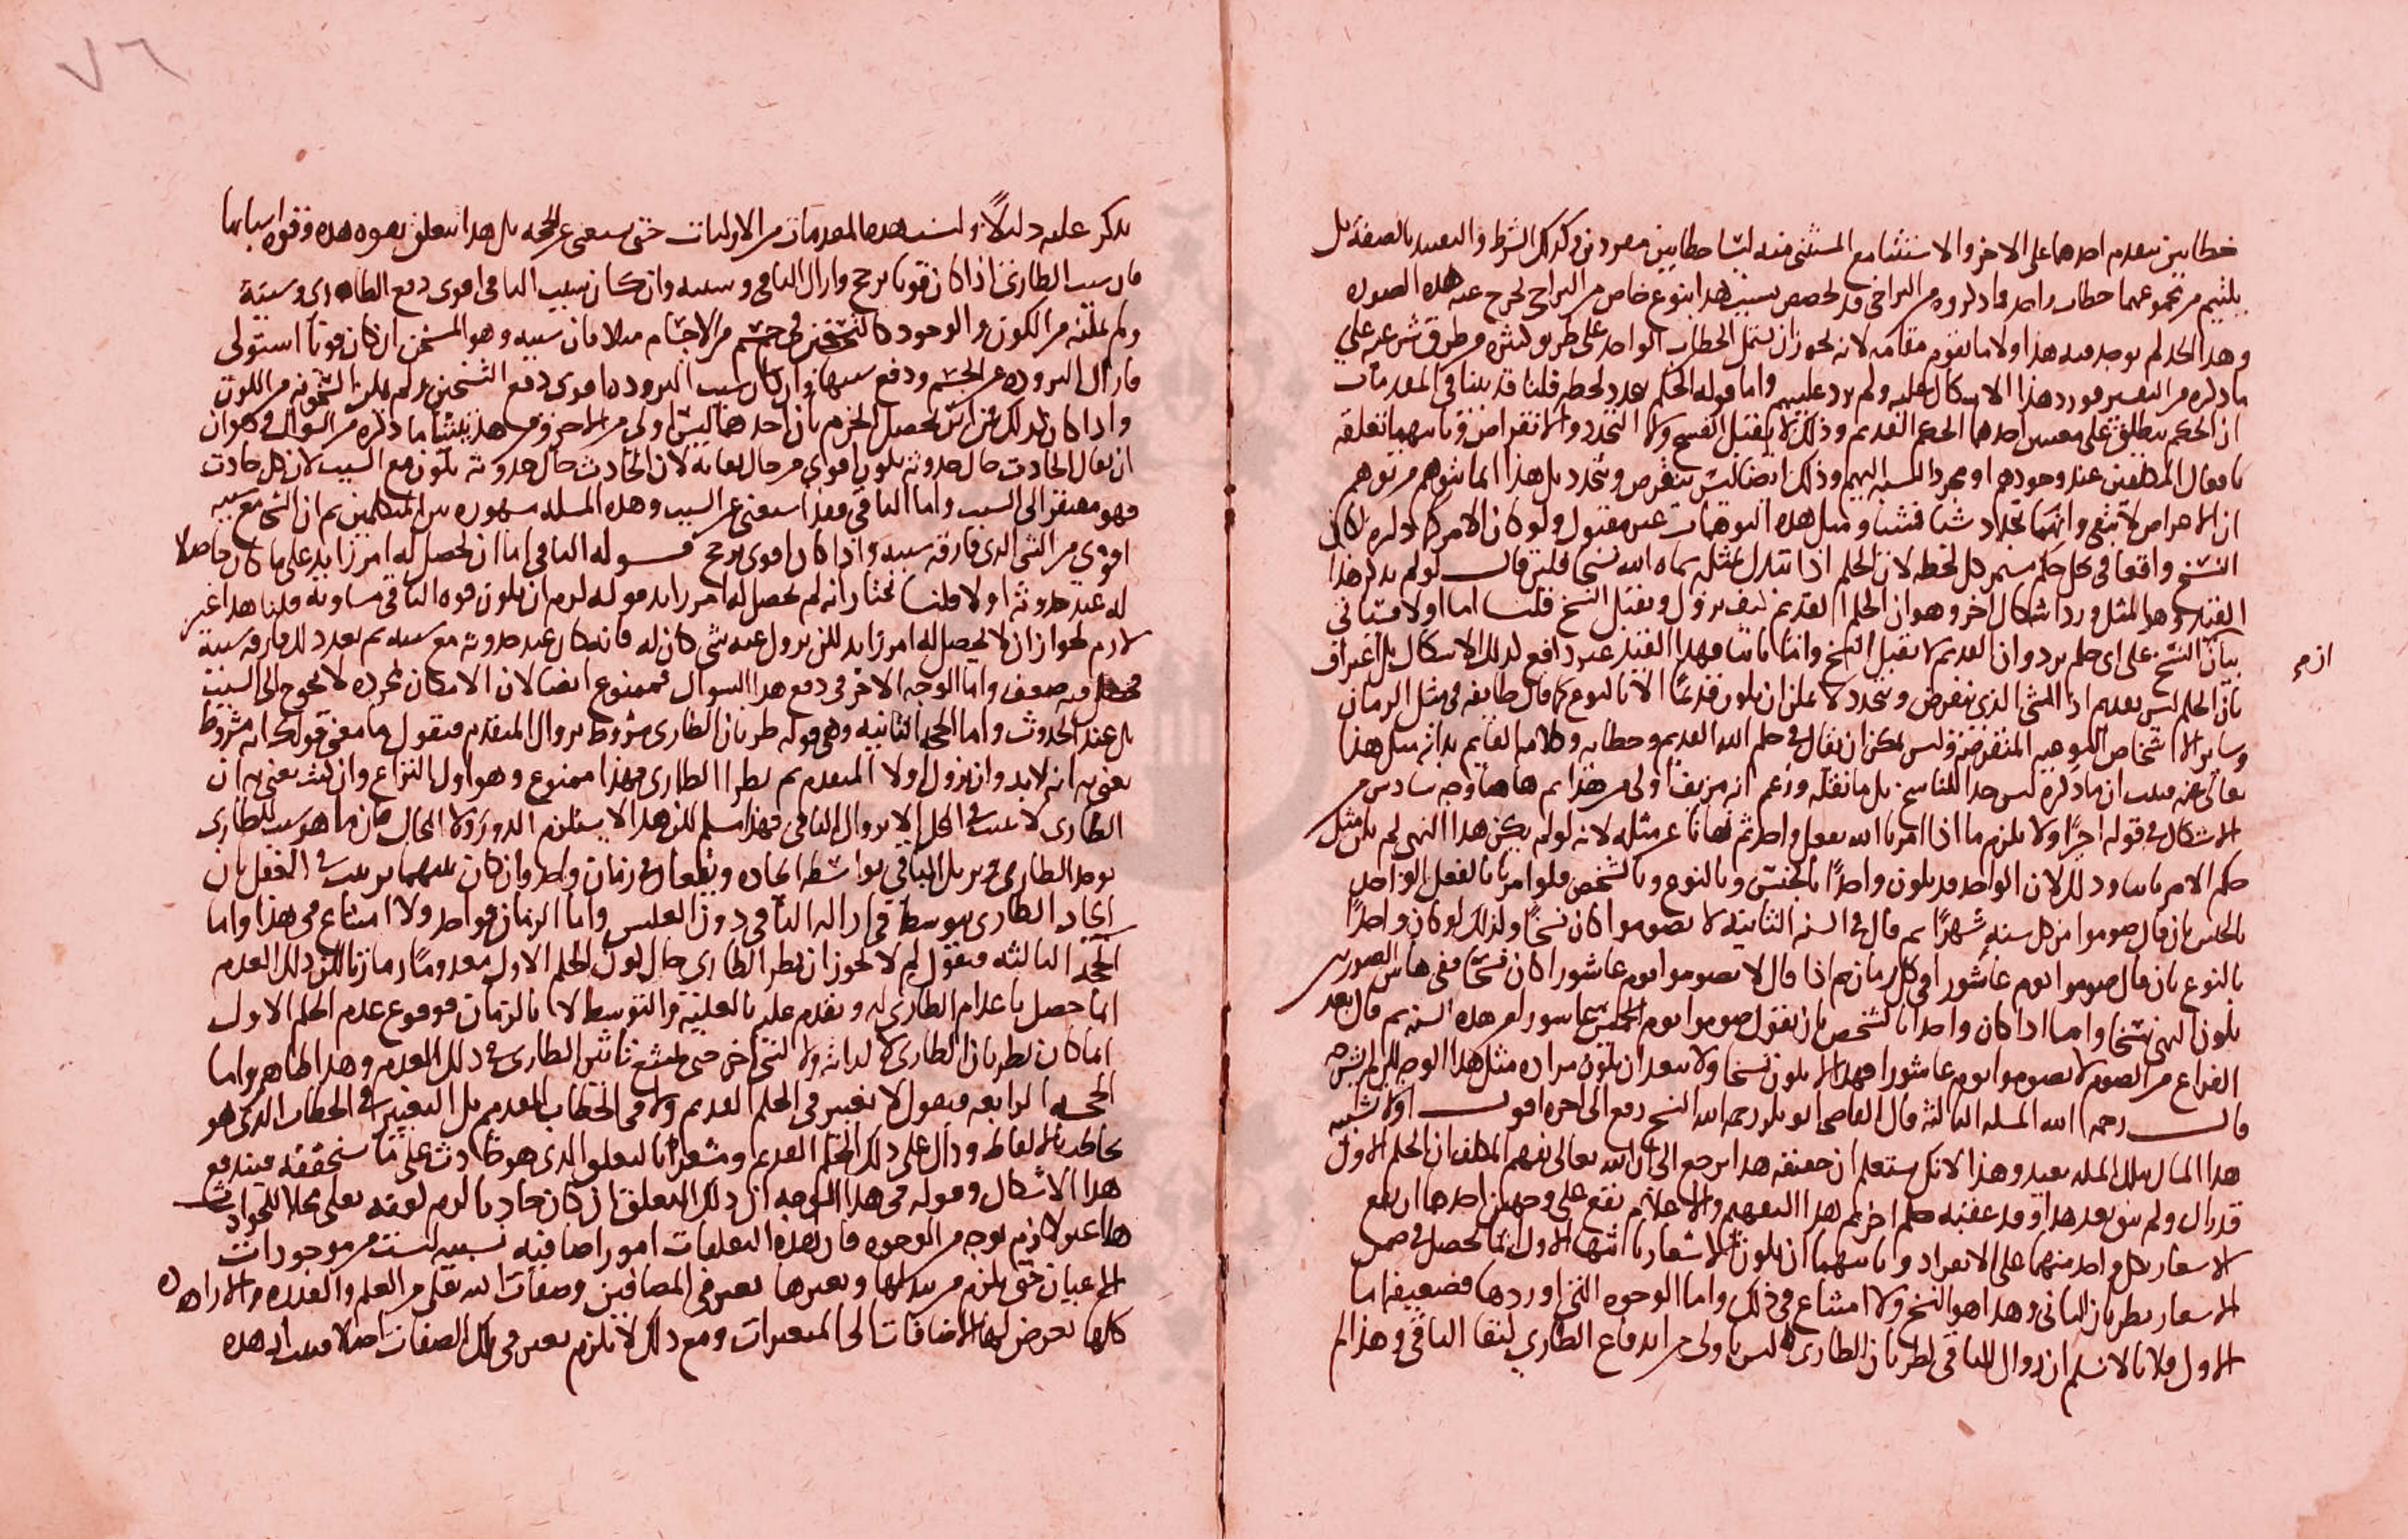 خطابين يتقدم احدهما على الاخر والاستثنا مع المستثنى منه ليسا خطابين مفردين وكذلك الشرط والتقييد بالصفة بل
يلتئم من مجموعهما خطاب واحد وما ذكروه من التراخي قد تخصص بسببه هذا بنوع خاص من التراخي تخرج عنه هذه الصورة
وهذا الحد لم يوجد فيه هذا ولا ما يقوم مقامه لانه يجوز ان يشتمل الخطاب الواحد على طرق كثيرة وطرق شرعية على
ما ذكره من التفسير فورد هذا الاشكال عليه ولم يرد عليهم واما قوله الحكم يعدد لحظة قلنا قد بينا في المقدمات
ان الحكم يطلق على معنيين احدهما الحكم القديم وذلك لا يقبل الفسخ ولا التجدد والانقراض وثانيهما تعلقه
بافعال المكلفين عند وجودهم او مجرد النسبة اليهم وذلك ايضا ليس ينقرض ويتجدد بل هذا انما يتوهم من توهم
ان الاعراض لا تبقى وانها تتجدد شيا فشيا ومثل هذه التوهمات غير مقبول ولو كان الامر كما ذكره لكان
النسخ واقعا في كل حكم مستمر كل لحظة لان الحكم اذا تبدل بمثله سماه الله نسخا فلئن قال لو لم يذكر هذا
القيد وهو المثل ورد اشكال اخر وهو ان الحكم القديم كيف يزول ويقبل النسخ قلنا اما اولا فسياتي
بيان النسخ على اي حكم يرد وان القديم لا يقبل النسخ واما ثانيا فهذا القيد غير دافع لذلك الاشكال بل اعتراف
ازم
بان الحكم ليس بقديم اذ الشي الذي ينقرض ويتجدد لا يمكن ان يكون قديما الا بالنوع كما قال طايفة في مثل الزمان
وساير الاشخاص النوعية المنقرضة وليس يمكن ان يقال في حكم الله القديم وخطابه وكلامه القايم بذاته مثل هذا
تعالى عنه فثبت ان ما ذكره ليس حدا للناسخ بل ما نقله وزعم انه مزيف اولى من هذا ثم هاهنا وجه سادس من
الاشكال في قوله اخيرا ولا يلزم ما اذا امرنا الله بفعل واحد ثم نهانا عن مثله لانه لو لم يكن هذا النهي لم يكن مثل
حكم الامر ثابتا وذلك لان الواحد قد يكون واحدا بالجنس وبالنوع وبالشخص فلو امرنا بالفعل الواحد
بالجنس بان قال صوموا من كل سنة شهرا ثم قال في السنة الثانية لا تصوموا كان نسخا وكذلك لو كان واحدا
بالنوع بان قال صوموا يوم عاشورا في كل زمان ثم اذا قال لا تصوموا يوم عاشورا كان نسخا ففي هاتين الصورتين
يكون النهي نسخا واما اذا كان واحدا بالشخص بان يقول صوموا يوم الخميس عاشورا من هذه السنة ثم قال بعد
الفراغ من الصوم لا تصوموا يوم عاشورا فهذا لا يكون نسخا ولا يبعد ان يكون مراده مثل هذا الوجه لكن لم يشرحه
قال رحمه الله المسلة الثالثة قال القاضي ابو بكر رحمه الله النسخ رفع الى اخره اقول اولا نسبة
هذا المثال لتلك المسلة بعيد وهذا لانك ستعلم ان حقيقة هذا يرجع الى ان الله تعالى يفهم المكلف ان الحكم الاول
قد زال ولم يبق بعد هذا وقد عقبه حكم اخر ثم هذا التفهيم والاعلام يقع على وجهين احدهما ان يقع
الاشعار بكل واحد منهما على الانفراد وثانيهما ان يكون الاشعار بانتها الاول انما يحصل في ضمن
الاشعار بطريان الثاني وهذا هو النسخ ولا امتناع في ذلك واما الوجوه التي اوردها فضعيفة اما
الاول فلانا لا نسلم ان زوال الباقي لطريان الطاري ليس باولى من اندفاع الطاري لبقا الباقي وهذا لم
٧٦
يذكر عليه دليلا وليست هذه المقدمات من الاوليات حتى يستغنى عن الحجة بل هذا يتعلق بقوة هذه وقوة اسبابها
فان سبب الطاري اذا كان قويا يرجح وازال الباقي وسببه وان كان سبب الباقي اقوى دفع الطاري وسببه
ولم يمكنه من الكون والوجود كالتسخين في جسم من الاجسام مثلا فان سببه وهو المسخن ان كان قويا استولى
فازال البرودة عن الجسم ودفع سببها وان كان سبب البرودة اقوى دفع التسخين ولم يمكن السخونة من الكون
واذا كان كذلك فمن اين يحصل الجزم بان احدهما ليس اولى من الاخر ومن هذا ينشا ما ذكره من السوال وهو ان
ان يقال الحادث حال حدوثه يكون اقوى من حال بقايه لان الحادث حال حدوثه يكون مع السبب لان كل حادث
فهو مفتقر الى السبب واما الباقي فقد استغنى عن السبب وهذه المسلة مشهورة بين المتكلمين ثم ان الشي مع سببه
اقوى من الشي الذي فارقه سببه واذا كان اقوى يرجح قوله الباقي اما ان يحصل له امر زايد على ما كان حاصلا
له عند حدوثه او لا قلنا نختار انه لم يحصل له امر زايد قوله لزم ان يكون قوة الباقي مساوية قلنا هذا غير
لازم لجواز ان لا يحصل له امر زايد لكن يزول عنه شي كان له فانه كان عند حدوثه مع سببه ثم بعد ذلك فارقه سببه
فحصل فيه ضعف واما الوجه الاخر في دفع هذا السوال فممنوع ايضا لان الامكان بمجرده لا يحوج الى السبب
بل عند الحدوث واما الحجة الثانية وهي قوله طريان الطاري مشروط بزوال المتقدم فنقول ما معنى قولك انه مشروط
يعنى به انه لا بد وان يزول اولا المتقدم ثم يطرا الطاري فهذا ممنوع وهو اول النزاع وان كنت تعني به ان
الطاري لا يثبت في المحل الا بزوال الباقي فهذا مسلم لكن هذا لا يستلزم الدور ولا المحال فان ما هو سبب للطاري
يوجد الطاري ويزيل الباقي بواسطة ايجاده ويقعان في زمان واحد وان كان بينهما ترتيب في العقل بان
ايجاد الطاري يتوسط في ازالة الباقي دون العكس واما الزمان فواحد ولا امتناع في هذا واما
الحجة الثالثة فنقول لم لا يجوز ان يطرا الطاري حال كون الحكم الاول معدوما زمانا لكن ذلك العدم
انما حصل باعدام الطاري له وتقدم عليه بالعلية والتوسط لا بالزمان فوقوع عدم الحكم الاول
انما كان لطريان الطاري لا لذاته ولا لشي اخر حتى يمتنع تاثير الطاري في ذلك العدم وهذا ظاهر واما
الحجة الرابعة فنقول لا تغيير في الحكم القديم ولا في الخطاب القديم بل التغيير في الخطاب الذي هو
بالالفاظ ودال على ذلك الحكم القديم ومشعر بالتعلق الذي هو حادث على ما سنحققه فيندفع
هذا الاشكال وقوله في هذا الوجه ان ذلك التعلق ان كان حادثا لزم كونه تعالى محلا للحوادث
هذا غير لازم بوجه من الوجوه فان هذه التعلقات امور اضافية نسبية ليست من موجودات
الاعيان حتى يلزم من تبدلها وتغيرها تغير في المضافين وصفات الله تعالى من العلم والقدرة والارادة
كلها تعرض لها الاضافات الى المتغيرات ومع ذلك لا يلزم تغير في تلك الصفات اصلا فثبت ان هذه